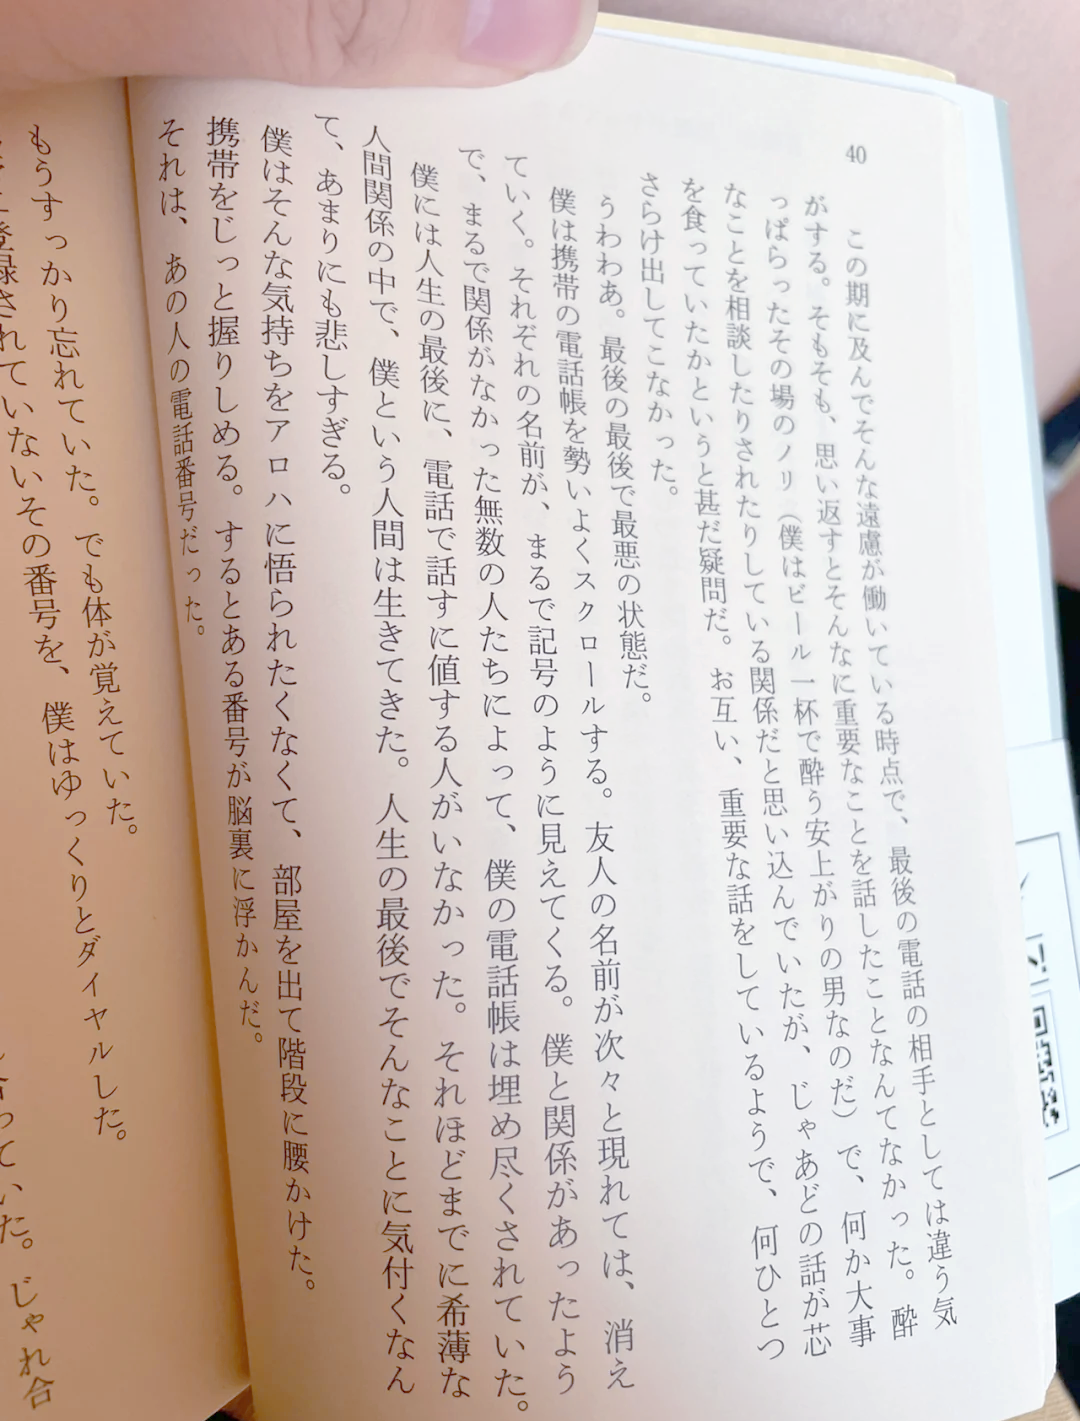 40
この期に及んでそんな遠慮が働いている時点で、最後の電話の相手としては違う気
がする。そもそも、思い返すとそんなに重要なことを話したことなんてなかった。酔
っぱらったその場のノリ（僕はビール一杯で酔う安上がりの男なのだ）で、何か大事
なことを相談したりされたりしている関係だと思い込んでいたが、じゃあどの話が芯
を食っていたかというと甚だ疑問だ。お互い、重要な話をしているようで、何ひとつ
さらけ出してこなかった。
うわわあ。最後の最後で最悪の状態だ。
僕は携帯の電話帳を勢いよくスクロールする。友人の名前が次々と現れては、消え
ていく。それぞれの名前が、まるで記号のように見えてくる。僕と関係があったよう
で、まるで関係がなかった無数の人たちによって、僕の電話帳は埋め尽くされていた。
僕には人生の最後に、電話で話すに値する人がいなかった。それほどまでに希薄な
人間関係の中で、僕という人間は生きてきた。人生の最後でそんなことに気付くなん
て、あまりにも悲しすぎる。
僕はそんな気持ちをアロハに悟られたくなくて、部屋を出て階段に腰かけた。
携帯をじっと握りしめる。するとある番号が脳裏に浮かんだ。
それは、あの人の電話番号だった。
もうすっかり忘れていた。でも体が覚えていた。
登録されていないその番号を、僕はゆっくりとダイヤルした。
っていた。じゃれ合